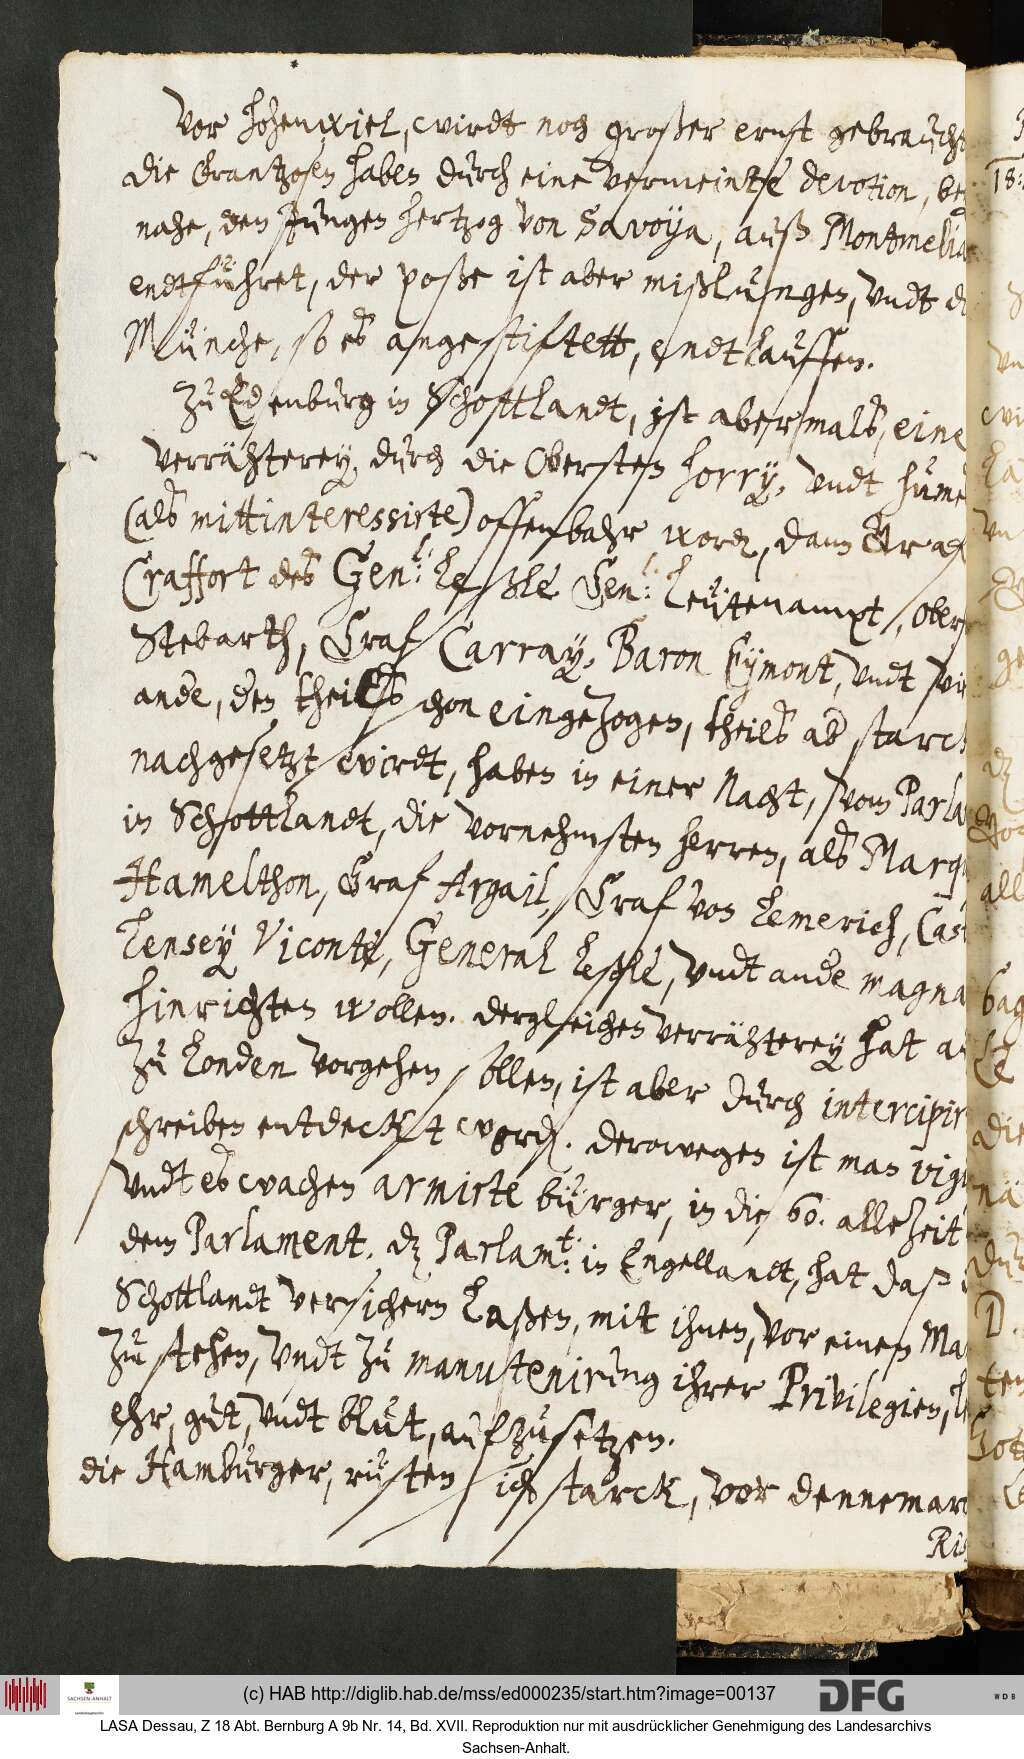 Vor Hohenwiel, wirdt noch großer ernst gebraucht
die Frantzosen haben durch eine vermeinte devotion, bey
nahe, den Jungen Hertzog von Savoya, auß Montmelia
endtführet, der poße ist aber mißlungen, vndt die
Münche, so es angestiftett, endtlauffen.
Zu Edenburg in Schottlandt, ist abermals, eine
verrähterey, durch die Obersten Horry, vndt Hume
(als mittinteressirte) offenbahr word, dann Graf
Craffort des Gen:l Leßle Gen:l Leütenampt, Obers
Stebarth, Graf Carray, Baron Eymont, vndt vie
ande, den theils schon eingezogen, theils ab starck
nachgesetzt wirdt, haben in einer Nacht, vom Parla
in Schottlandt, die vornehmsten herren, als Marq
Hamelthon, Graf Argail, Graf von Lemerich, Cas
Lensey Viconte, General Leßle, vndt ande magna
hinrichten wollen. dergleichen verrähterey hat a
zu Londen vorgehen sollen, ist aber durch intercipir
schreiben entdeckt word. derowegen ist man vigi
vndt es wachen armirte bürger, in die 60. allezeit
dem Parlament. dz Parlam:t in Engellandt, hat daß
Schottlandt versichern laßen, mit ihnen, vor einen Ma
zu stehen, vndt zu manutenirung ihrer Privilegien, le
ehr, gut, vndt blut, aufzusetzen.
die Hamburger, rüsten sich starck, vor dennemar
Ris
(c) HAB http://diglib.hab.de/mss/ed000235/start.htm?image=00137
DFG
WDB
SACHSEN-ANHALT
LASA Dessau, Z 18 Abt. Bernburg A 9b Nr. 14, Bd. XVII. Reproduktion nur mit ausdrücklicher Genehmigung des Landesarchivs
Sachsen-Anhalt.